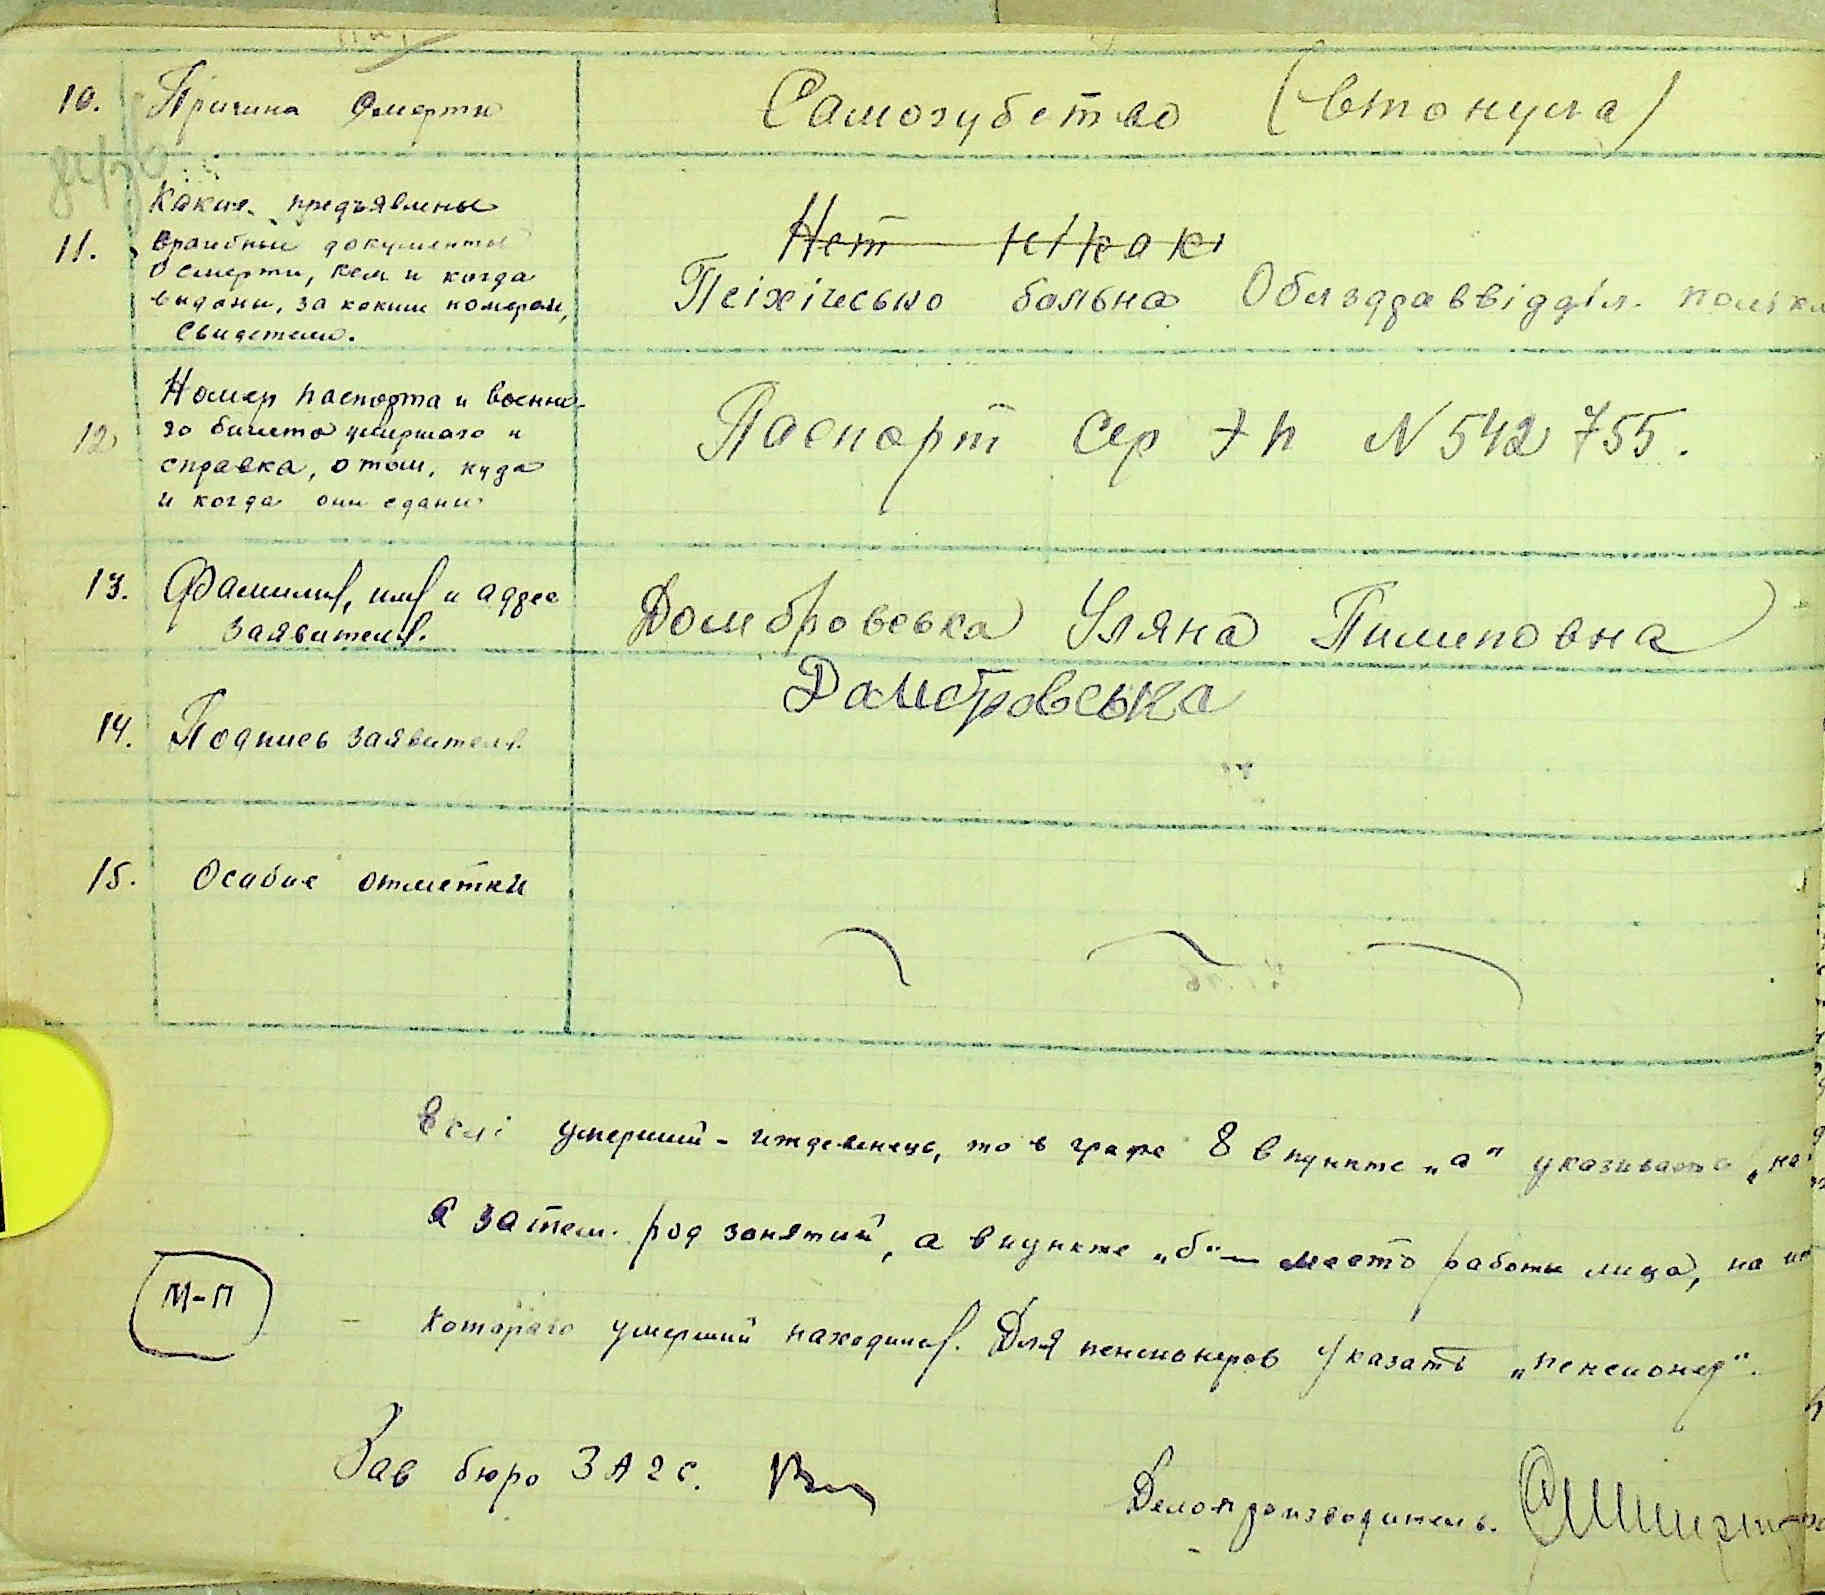 10. Причина Смерти
Самогубство (втонула)
11. Какие предъявлены
врачебные документы
о смерти, кем и когда
выданы, за каким номером,
свидетели.
Нет ніяк
Псіхічьсько больна Облздраввідділ. полікл
12. Номер паспорта и военно-
го билета умершаго и
справка, о том, куда
и когда они сданы
Паспорт Сер N 542 755.
13. Фамилия, имя и адрес
заявителя.
Домбровська Уляна Пилиповна
14. Подпись заявителя.
Домбровська
15. Особые отметки
Еслі умерший - иждевенець, то в графе 8 в пункте „а" указывается „на
а затем род занятий, а в пункте „б" — место работы лица, на
которого умерший находился. Для пенсионеров указать „пенсионер".
М-П
Зав бюро ЗАГС.
Делопроизводитель.